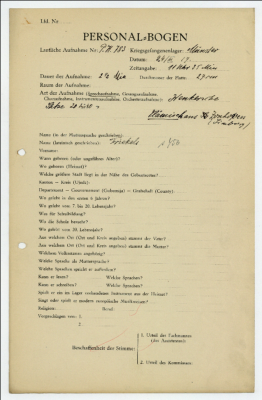 Lfd. Nr.
PERSONAL-BOGEN
Lautliche Aufnahme Nr.: P.K. 783 Kriegsgefangenenlager: Münster
Datum:
Zeitangabe:
Dauer der Aufnahme: 2½ Min Durchmesser der Platte: 27 cm
Raum der Aufnahme:
Art der Aufnahme (Sprechaufnahme, Gesangsaufnahme,
Choraufnahme, Instrumentenaufnahme, Orchesteraufnahme):
Name (in der Muttersprache geschrieben):
Name (lateinisch geschrieben):
Vorname:
Wann geboren (oder ungefähres Alter)?
Wo geboren (Heimat)?
Welche größere Stadt liegt in der Nähe des Geburtsortes?
Kanton — Kreis (Ujedz):
Departement — Gouvernement (Gubernija) — Grafschaft (County):
Wo gelebt in den ersten 6 Jahren?
Wo gelebt vom 7. bis 20. Lebensjahr?
Was für Schulbildung?
Wo die Schule besucht?
Wo gelebt vom 20. Lebensjahr?
Aus welchem Ort (Ort und Kreis angeben) stammt der Vater?
Aus welchem Ort (Ort und Kreis angeben) stammt die Mutter?
Welchem Volksstamm angehörig?
Welche Sprache als Muttersprache?
Welche Sprachen spricht er außerdem?
Kann er lesen? Welche Sprachen?
Kann er schreiben? Welche Sprachen?
Spielt er ein im Lager vorhandenes Instrument aus der Heimat?
Singt oder spielt er modern europäische Musikweisen?
Religion: Beruf:
Vorgeschlagen von: 1.
2.
Beschaffenheit der Stimme:
1. Urteil des Fachmannes
(des Assistenten):
2. Urteil des Kommissars: